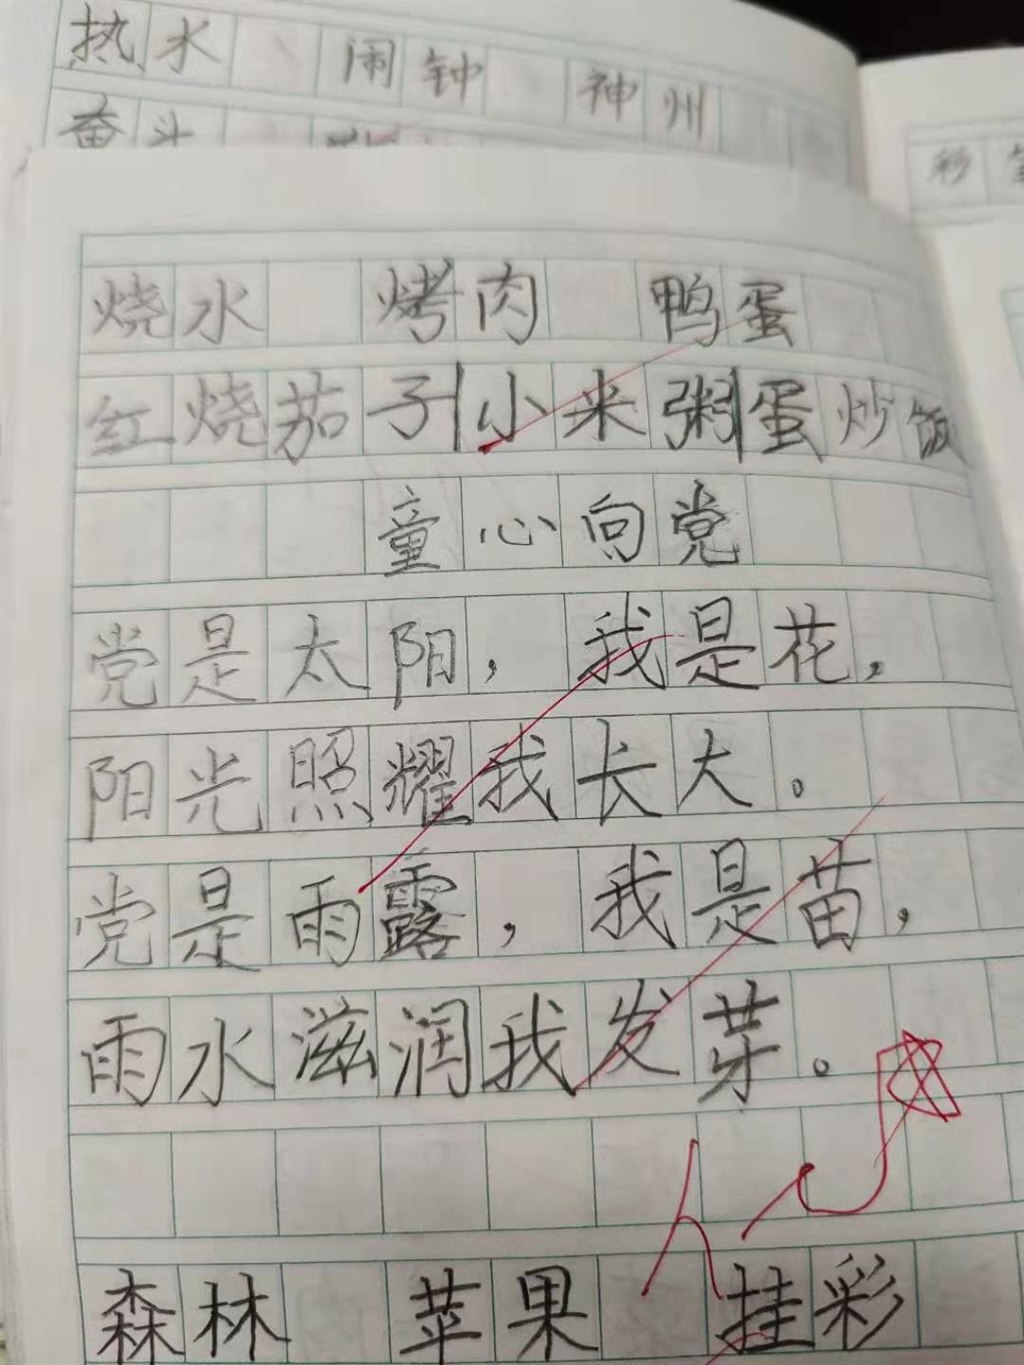 热水 闹钟 神州
奋斗
秒
烧水 烤肉 鸭蛋
红烧茄子|小米粥|蛋炒饭
童心向党
党是太阳，我是花，
阳光照耀我长大。
党是雨露，我是苗，
雨水滋润我发芽。
森林 苹果 挂彩